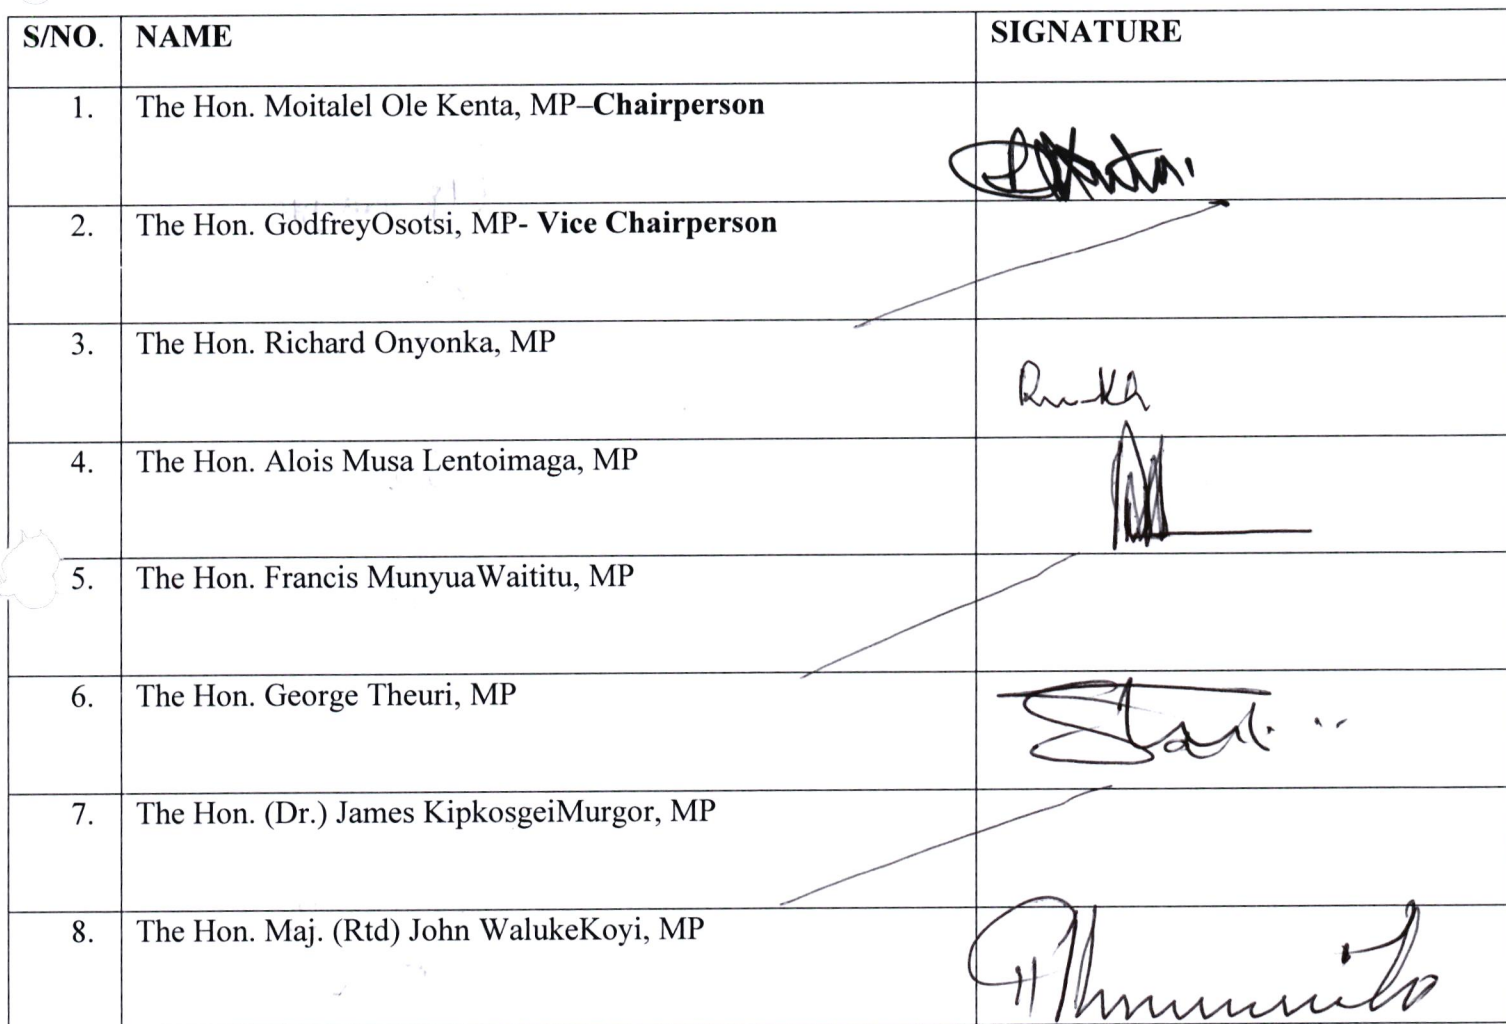 S/NO. NAME SIGNATURE
1. The Hon. Moitalel Ole Kenta, MP–Chairperson
2. The Hon. GodfreyOsotsi, MP- Vice Chairperson
3. The Hon. Richard Onyonka, MP
4. The Hon. Alois Musa Lentoimaga, MP
5. The Hon. Francis MunyuaWaititu, MP
6. The Hon. George Theuri, MP
7. The Hon. (Dr.) James KipkosgeiMurgor, MP
8. The Hon. Maj. (Rtd) John WalukeKoyi, MP